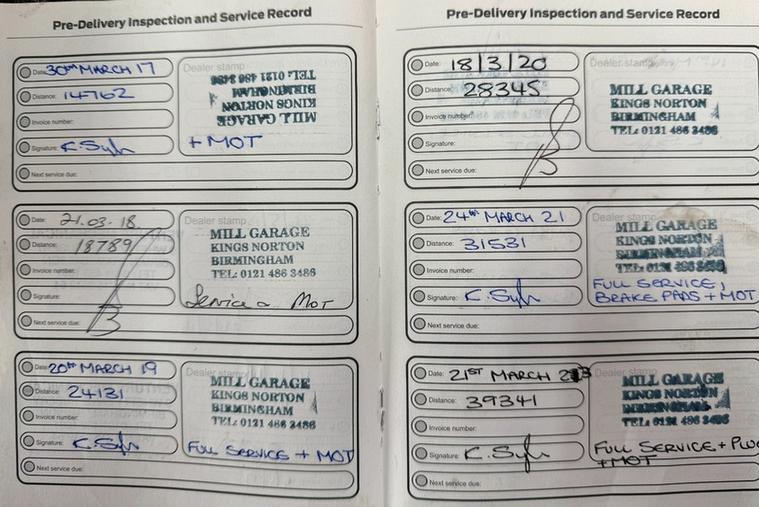 Pre-Delivery Inspection and Service Record
Date: 30TH MARCH 17
Distance: 14762
Invoice number:
Signature:
Next service due:
Dealer stamp
MILL GARAGE
KINGS NORTON
BIRMINGHAM
TEL: 0121 486 3486
+ MOT
Date: 21.03.18
Distance: 18789
Invoice number:
Signature:
Next service due:
Dealer stamp
MILL GARAGE
KINGS NORTON
BIRMINGHAM
TEL: 0121 486 3486
Service & MOT
Date: 20TH MARCH 19
Distance: 24131
Invoice number:
Signature:
Next service due:
Dealer stamp
MILL GARAGE
KINGS NORTON
BIRMINGHAM
TEL: 0121 486 3486
FULL SERVICE + MOT
Pre-Delivery Inspection and Service Record
Date: 18/3/20
Distance: 28345
Invoice number:
Signature:
Next service due:
Dealer stamp
MILL GARAGE
KINGS NORTON
BIRMINGHAM
TEL: 0121 486 3486
Date: 24TH MARCH 21
Distance: 31531
Invoice number:
Signature:
Next service due:
Dealer stamp
MILL GARAGE
KINGS NORTON
BIRMINGHAM
TEL: 0121 486 3486
FULL SERVICE,
BRAKE PADS + MOT
Date: 21ST MARCH
Distance: 39341
Invoice number:
Signature:
Next service due:
Dealer stamp
MILL GARAGE
KINGS NORTON
BIRMINGHAM
TEL: 0121 486 3486
FULL SERVICE + PLU
+MOT